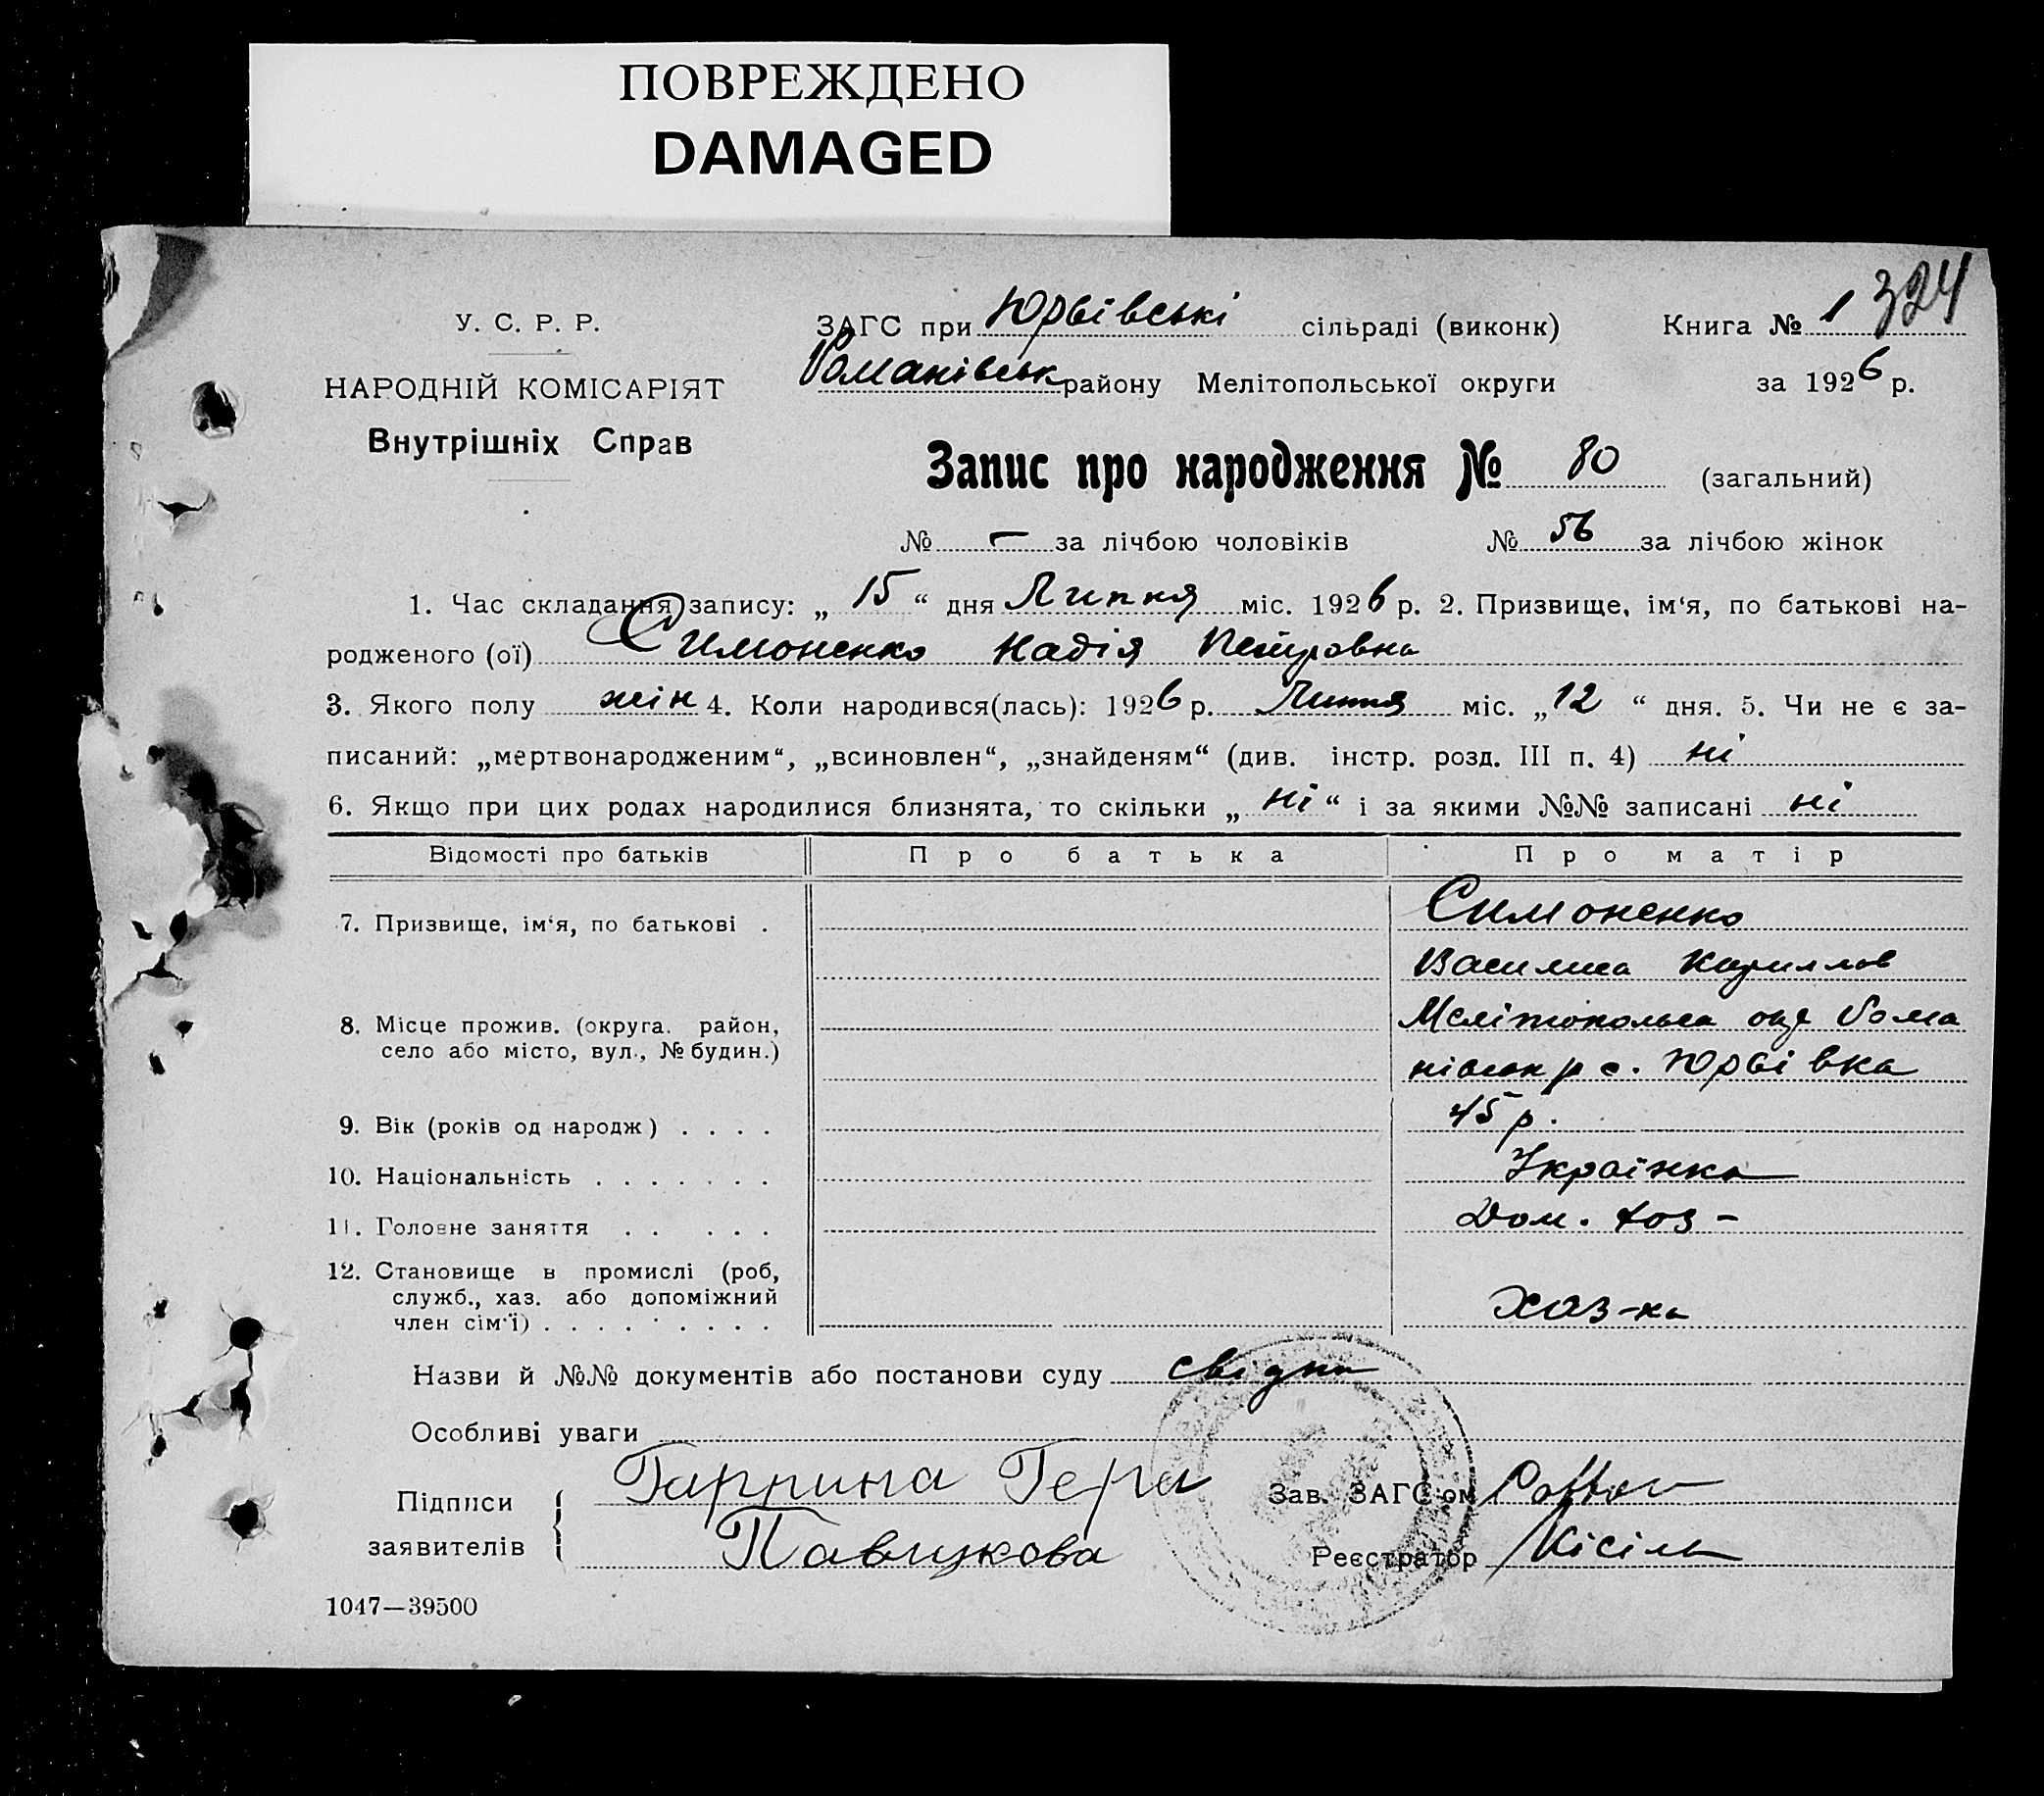 ПОВРЕЖДЕНО
DAMAGED
324
У. С. Р. Р.
НАРОДНІЙ КОМІСАРІЯТ
Внутрішніх Справ
ЗАГС при Юрьівські сільраді (виконк) Книга № 1
Романівськ району Мелітопольської округи за 1926 р.
Запис про народження № 80 (загальний)
№ – за лічбою чоловіків № 56 за лічбою жінок
1. Час складання запису: „ 15 “ дня Липня міс. 1926 р. 2. Призвище, ім‘я, по батькові на-
родженого (ої) Симоненко Надія Петровна
3. Якого полу жін 4. Коли народився(лась): 1926 р. Липня міс. „ 12 “ дня. 5. Чи не є за-
писаний: „мертвонародженим“, „всиновлен“, „знайденям“ (див. інстр. розд. III п. 4) ні
6. Якщо при цих родах народилися близнята, то скільки „ ні “ і за якими №№ записані ні
Відомості про батьків Про батька Про матір
7. Призвище, ім‘я, по батькові . Симоненко
Василиса Кириллов
8. Місце прожив. (округа. район, Мелітопольса окр Рома
село або місто, вул., № будин.) нівськ р с. Юрьівка
9. Вік (років од народж) . . . . 45 р.
10. Національність . . . . . . . Українка
11. Головне заняття . . . . . Дом. хоз-
12. Становище в промислі (роб,
служб., хаз. або допоміжний
член сім‘ї) . . . . . . . . . хаз-ка
Назви й №№ документів або постанови суду
Особливі уваги
Підписи Гаррина Гера Зав. ЗАГС‘ом
заявителів Реєстратор Кісіль
1047—39500